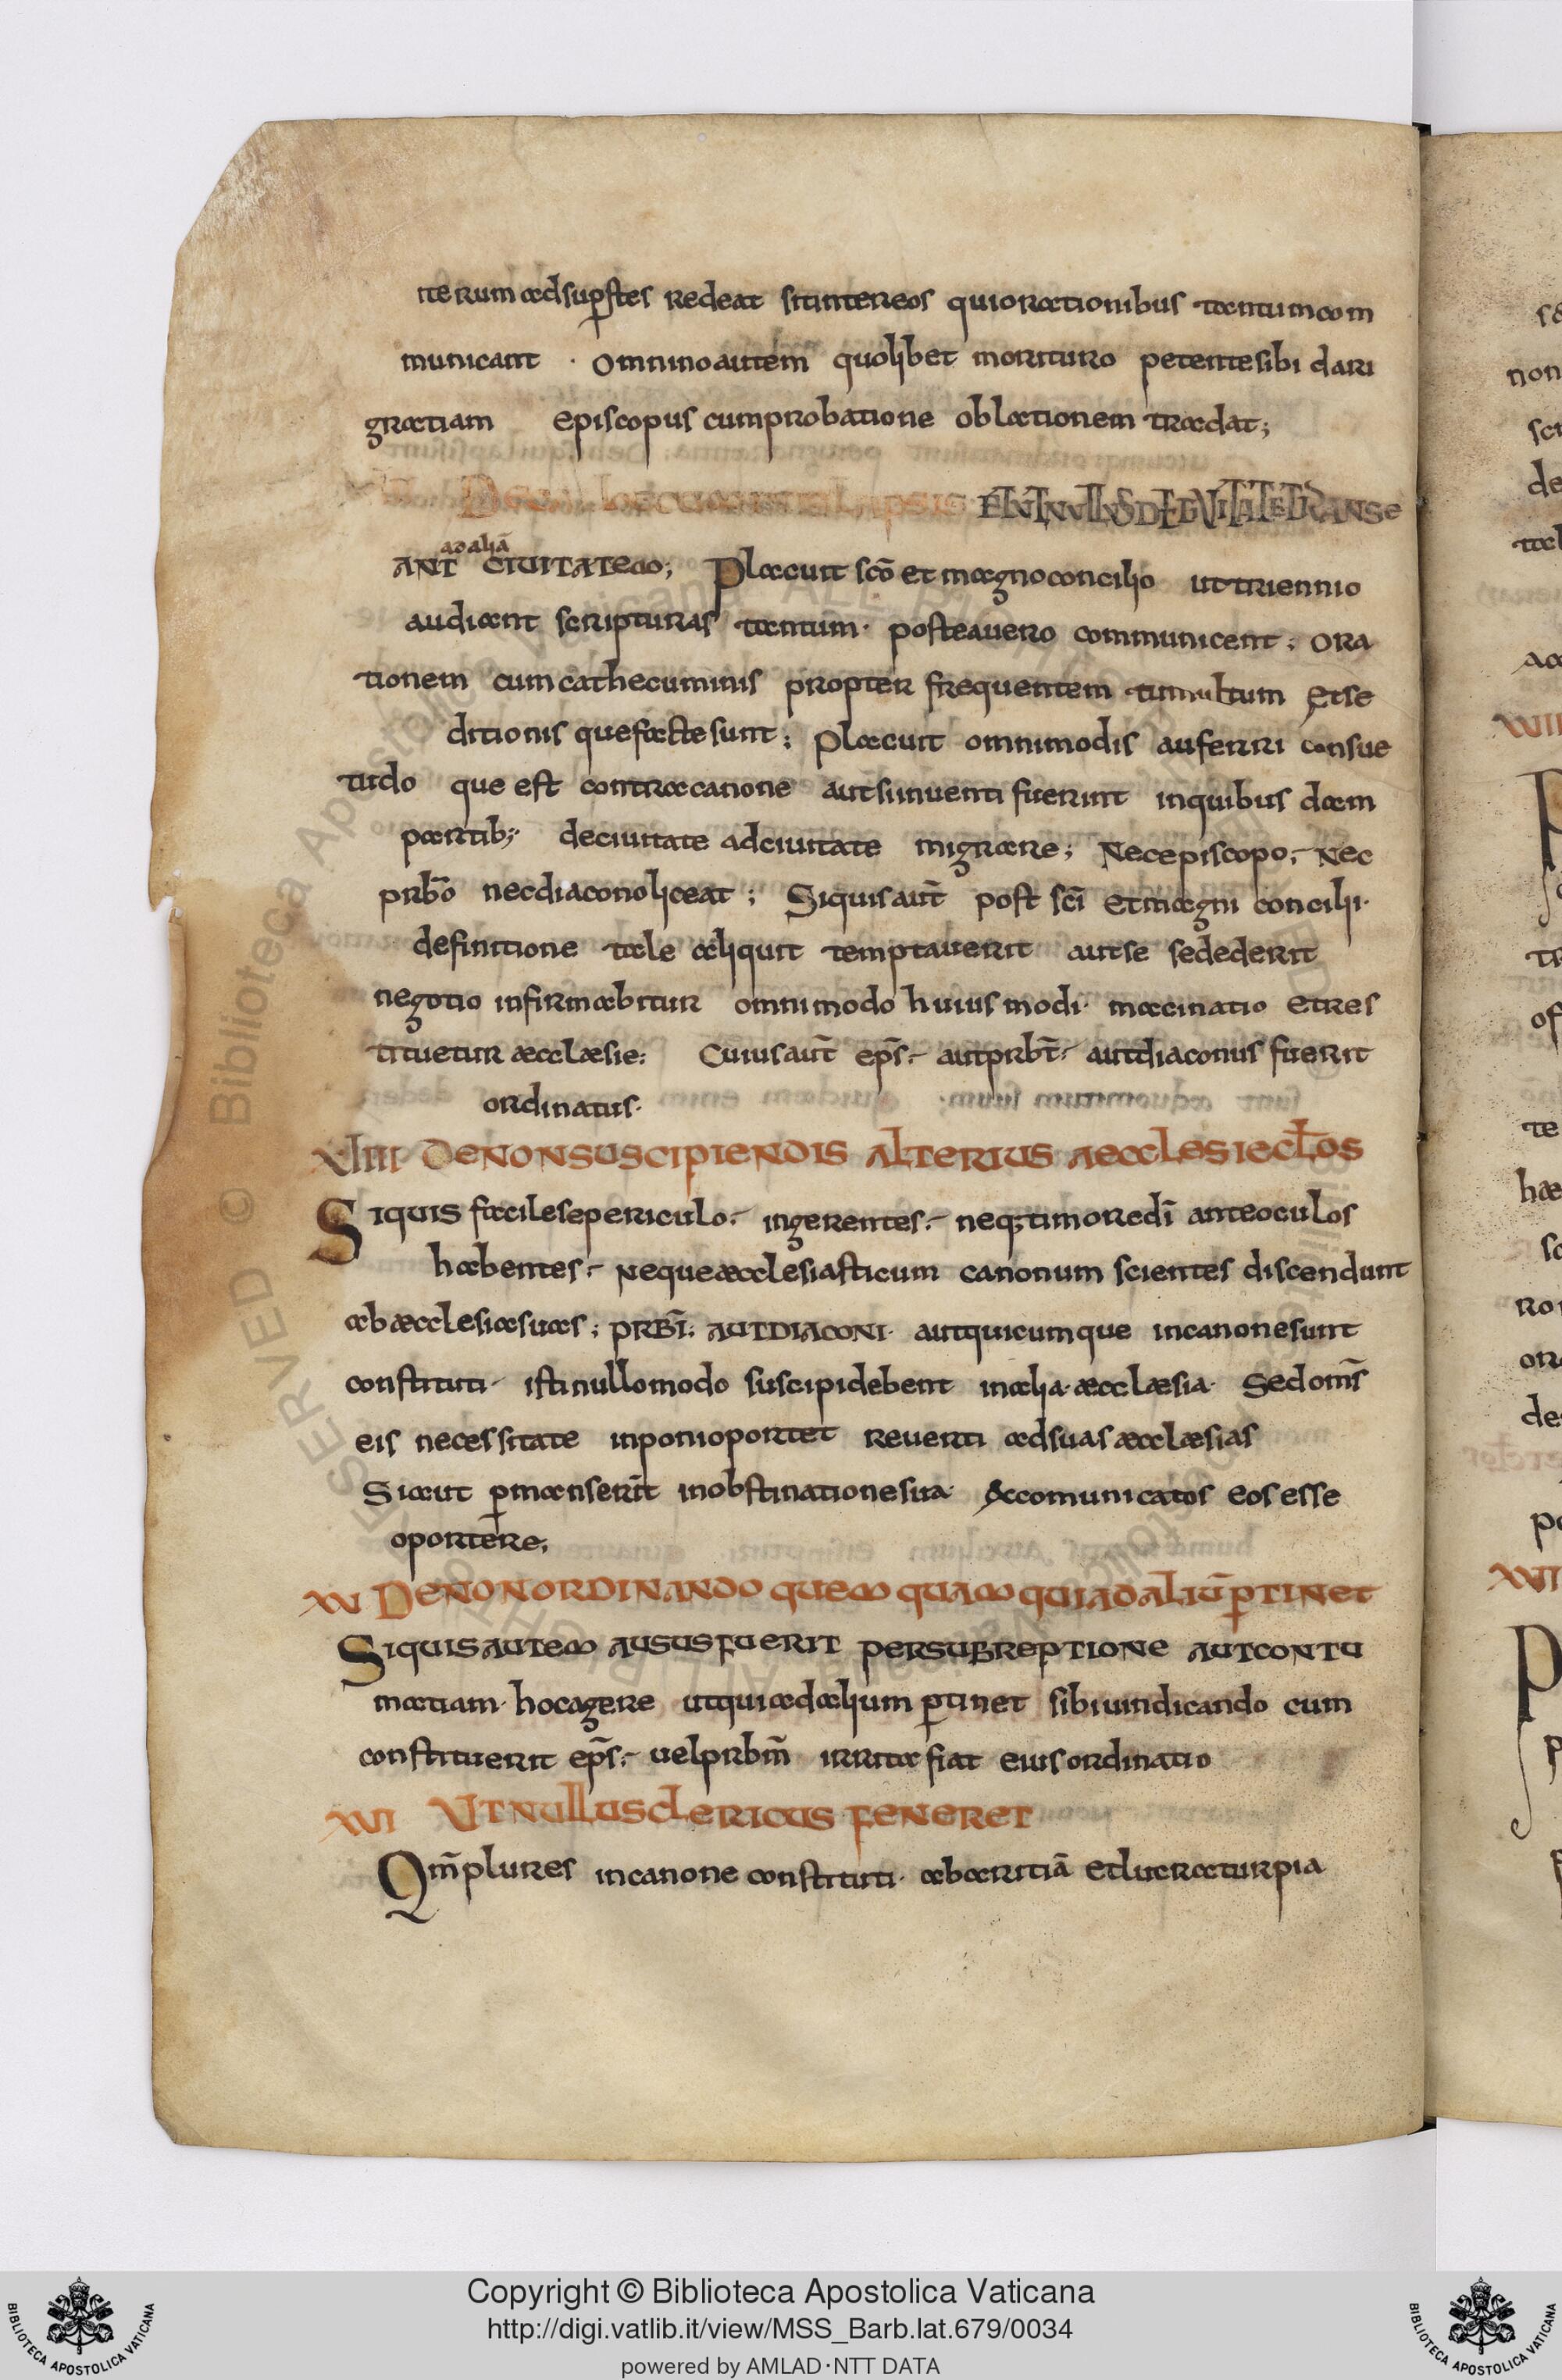 iterum ad suꝑstes redeat sit inter eos qui orationibus tantum com
municant · omnino autem quolibet morituro petente sibi dari
gratiam episcopus cum probatione oblationem tradat;
lapsis ET UT NULLUS DE CIVITATE TRANSE
ad aliā
ANT CIVITATEM; Placuit scō et magno concilio ut triennio
audiant scripturas tantum· postea vero communicent; ora
tionem cum cathecuminis propter frequentem tumultum Et se
ditionis que facte sunt; placuit omnimodis auferri consue
tudo que est contra canone aut si inventi fuerint in quibusdam
partib; de civitate ad civitate migrare; Nec episcopo, Nec
prbō nec diacono liceat; Si quis aūt post scī et magni concilii·
definitione tale aliquit temptaverit aut se se dederit
negotio infirmabitur omnimodo huiusmodi· maccinatio et res
tituetur æcclæsie: Cuius aūt ep̄s aut prbt̄ aut diaconus fuerit
ordinatus·
XIIII DE NON SUSCIPIENDIS ALTERIUS AECCLESIE CLŌS
Si quis facile se periculo ingerentes neq; timore dī ante oculos
habentes neque æcclesiasticum canonum scientes discendunt
ab æcclesia suas; PRBĪ; AUT DIACONI· aut quicumque in canone sunt
constituti· isti nullo modo suscipi debent in alia· æcclæsia· Sed oms̄
eis necessitate inponi oportet reverti ad suas æcclæsias
Si aut ꝑmanserīt in obstinatione sua· Accomunicatos eos esse
oportere;
XV DE NON ORDINANDO QUEMQUAM QUI AD ALIŪ ꝑTINET
Si quis autem ausus fuerit per subreptione aut contu
matiam· hoc agere ut qui ad alium ꝑtinet sibi vindicando cum
constituerit ep̄s vel prbm̄ irrita fiat eius ordinatio
XVI UT NULLUS CLERICUS FENERET
Qm̄ plures in canone constituti· ab aritiā et lucra turpia